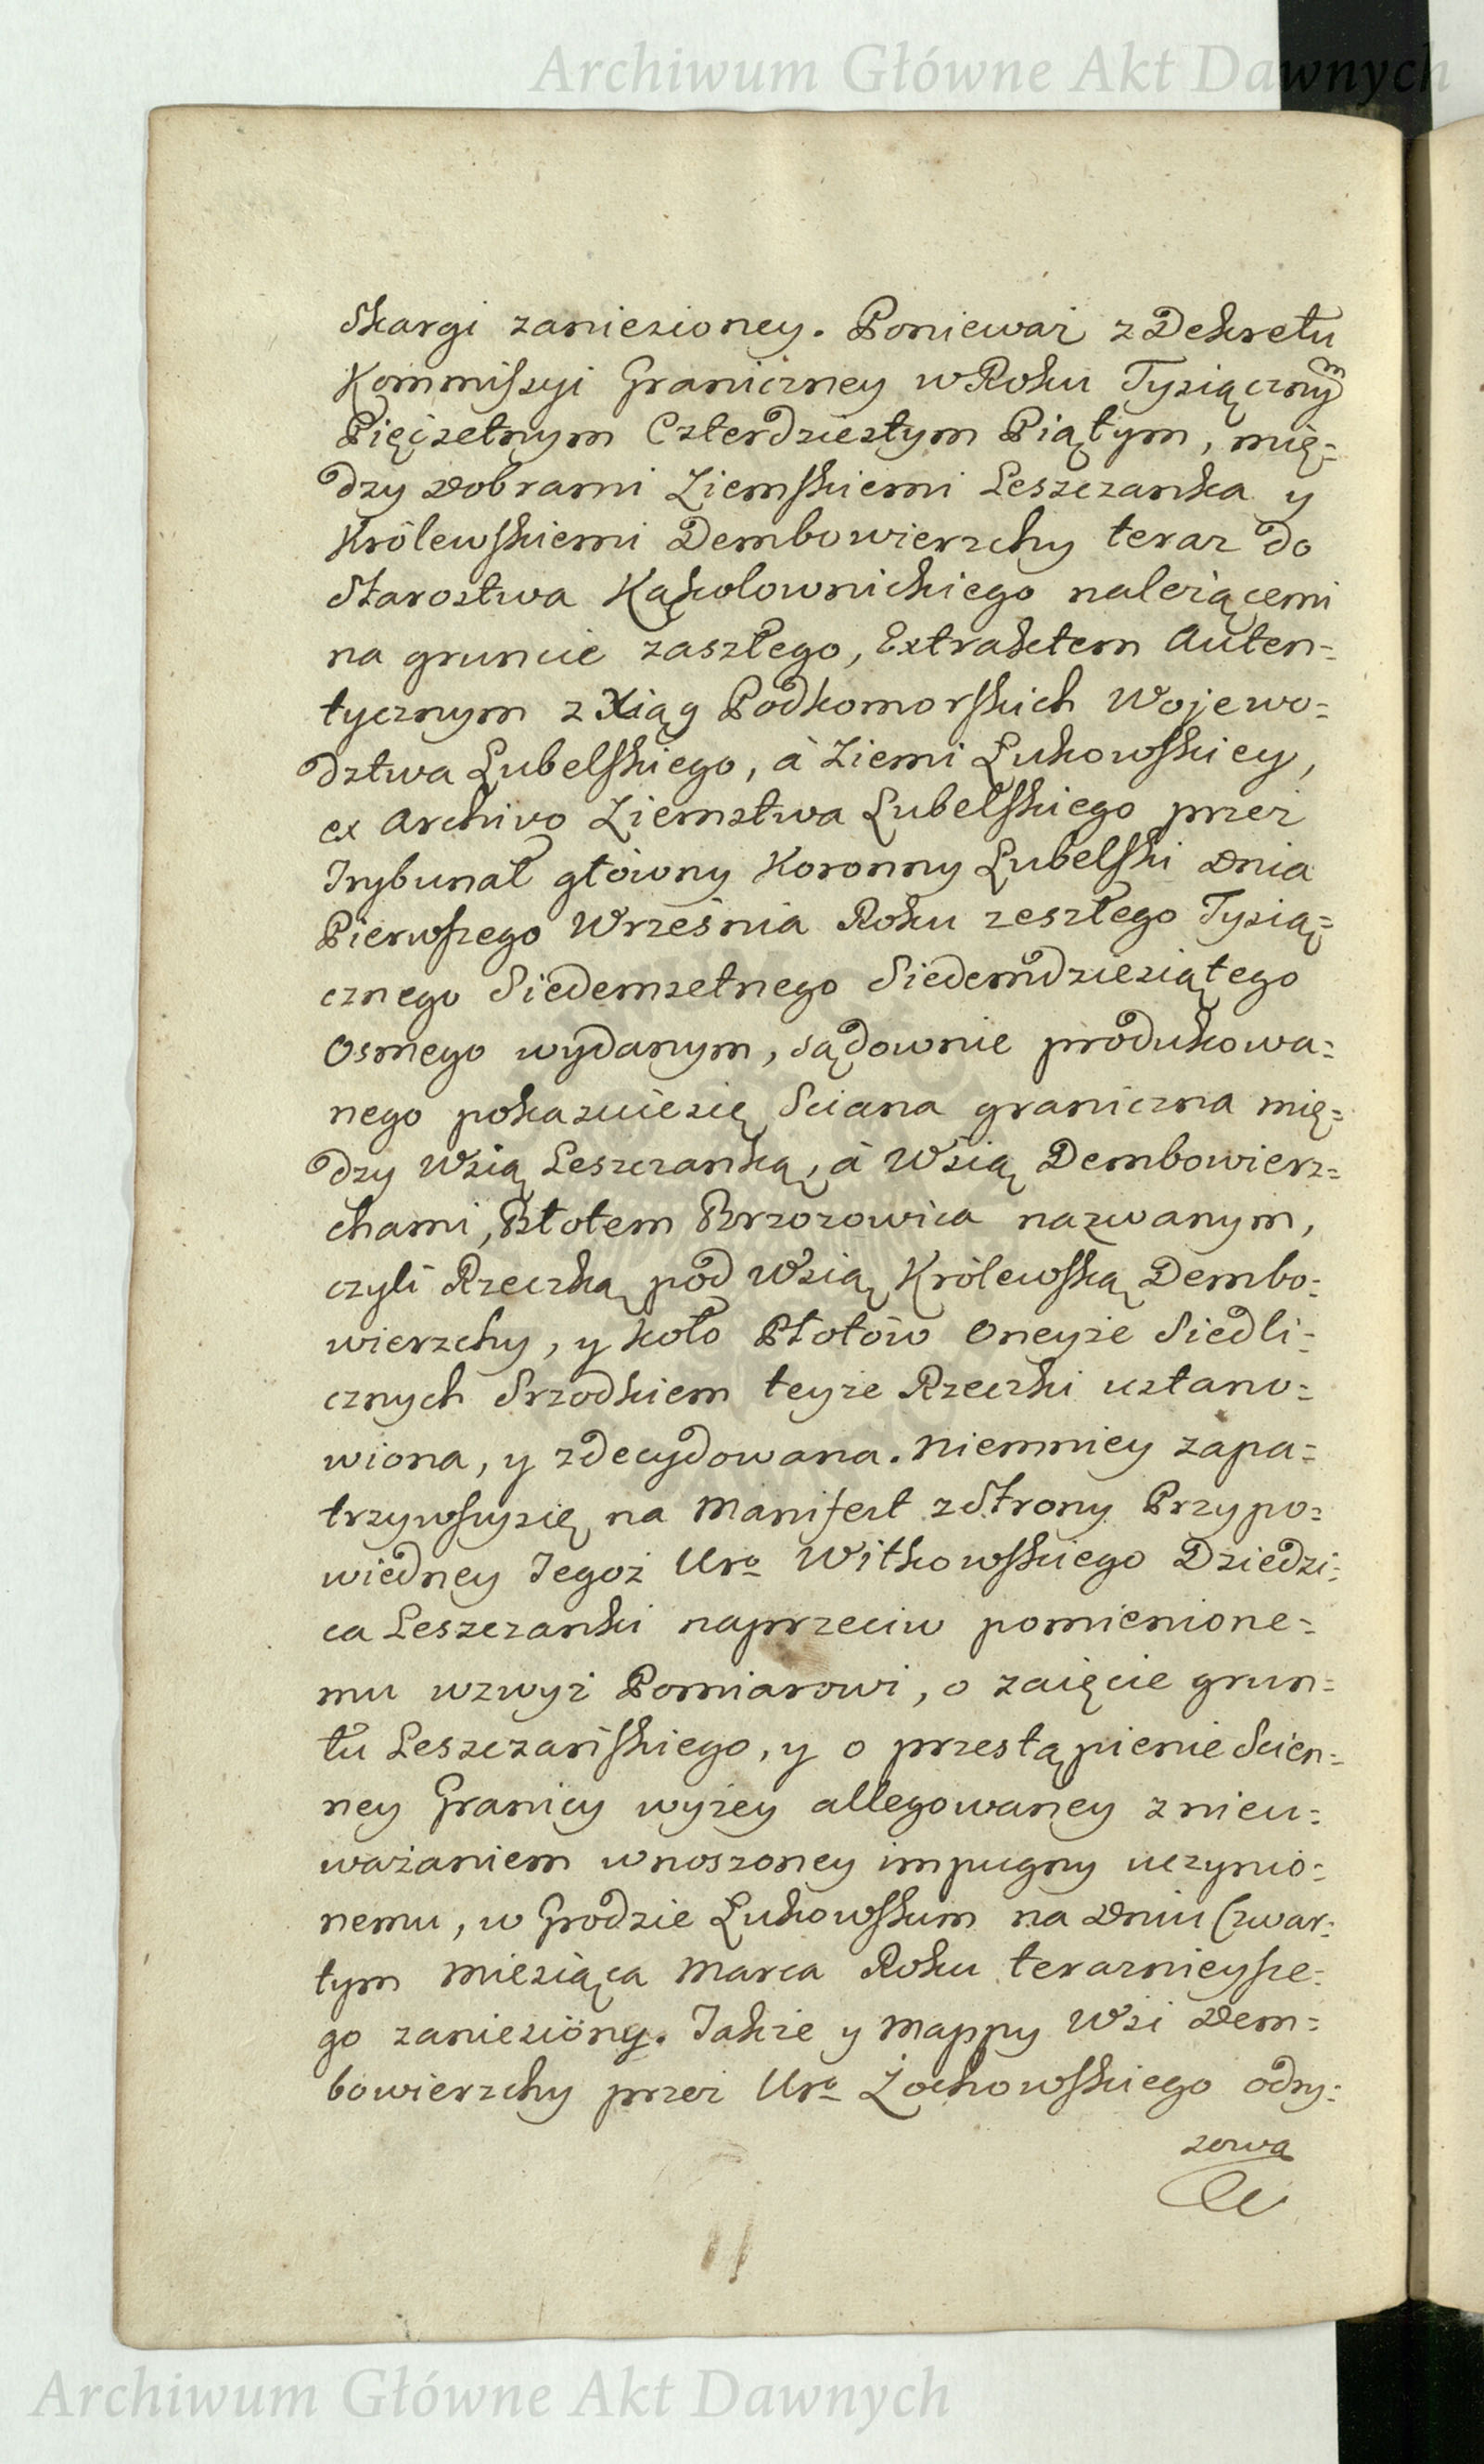 Archiwum Główne Akt Dawnych
Skargi zaniesioney. Ponieważ z Dekretu
Kommissyi Graniczney w Roku Tysiącznym
Pięćsetnym Czterdziestym Piątym, mię=
dzy Dobrami Ziemskiemi Leszczanka y
Królewskiemi Dembowierzchy teraz do
Starostwa Kąkolownickiego należącemi
na gruncie zaszłego, Extraktem Auten=
tycznym z Xiąg Podkomorskich Wojewo=
dztwa Lubelskiego, à Ziemi Łukowskiey,
ex Archivo Ziemstwa Lubelskiego przez
Trybunał główny Koronny Lubelski Dnia
Pierwszego Września Roku zeszłego Tysią=
cznego Siedemsetnego Siedemdziesiątego
Osmego wydanym, sądownie produkowa=
nego pokazuiesię Sciana graniczna mię=
dzy Wsią Leszczanką, à Wsią Dembowierz=
chami, Błotem Brzozowica nazwanym,
czyli Rzeczką pod Wsią Królewską Dembo=
wierzchy, y koło Płotów Oneyże Siedli=
cznych Srzodkiem teyże Rzeczki ustano=
wiona, y zdecydowana. Niemniey zapa=
trzywszysię na Manifest z Strony Przypo=
wiedney Jegoż Uro Witkowskiego Dziedzi=
ca Leszczanki naprzeciw pomienione=
mu wzwyż Pomiarowi, o zaięcie grun=
tu Leszczańskiego, y o przestąpienie Scien=
ney Granicy wyżey allegowaney z nieu=
ważaniem wnoszoney impugny uczynio=
nemu, w Grodzie Łukowskim na Dniu Czwar=
tym Miesiąca Marca Roku teraznieysze=
go zaniesiony. Jakże y Mappy Wsi Dem=
bowierzchy przez Uro Żochowskiego odry=
sowa
Archiwum Główne Akt Dawnych